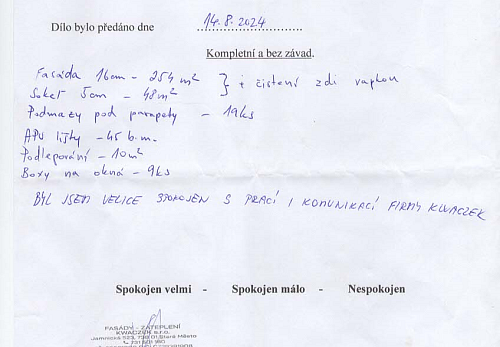 Dílo bylo předáno dne 14.8.2024
Kompletní a bez závad.
Fasáda 16cm - 254 m² } + čistení zdi vapkou
Sokel 5cm - 48m²
Podmazy pod parapety - 19ks
APU lišty - 45 b.m.
Podlepování - 10m²
Boxy na okna - 9ks
BYL JSEM VELICE SPOKOJEN S PRACÍ I KOMUNIKACÍ FIRMY KWACZEK
Spokojen velmi - Spokojen málo - Nespokojen
FASÁDY - ZATEPLENÍ
KWACZEK s.r.o.
Jamnická 523, 739 01 Staré Město